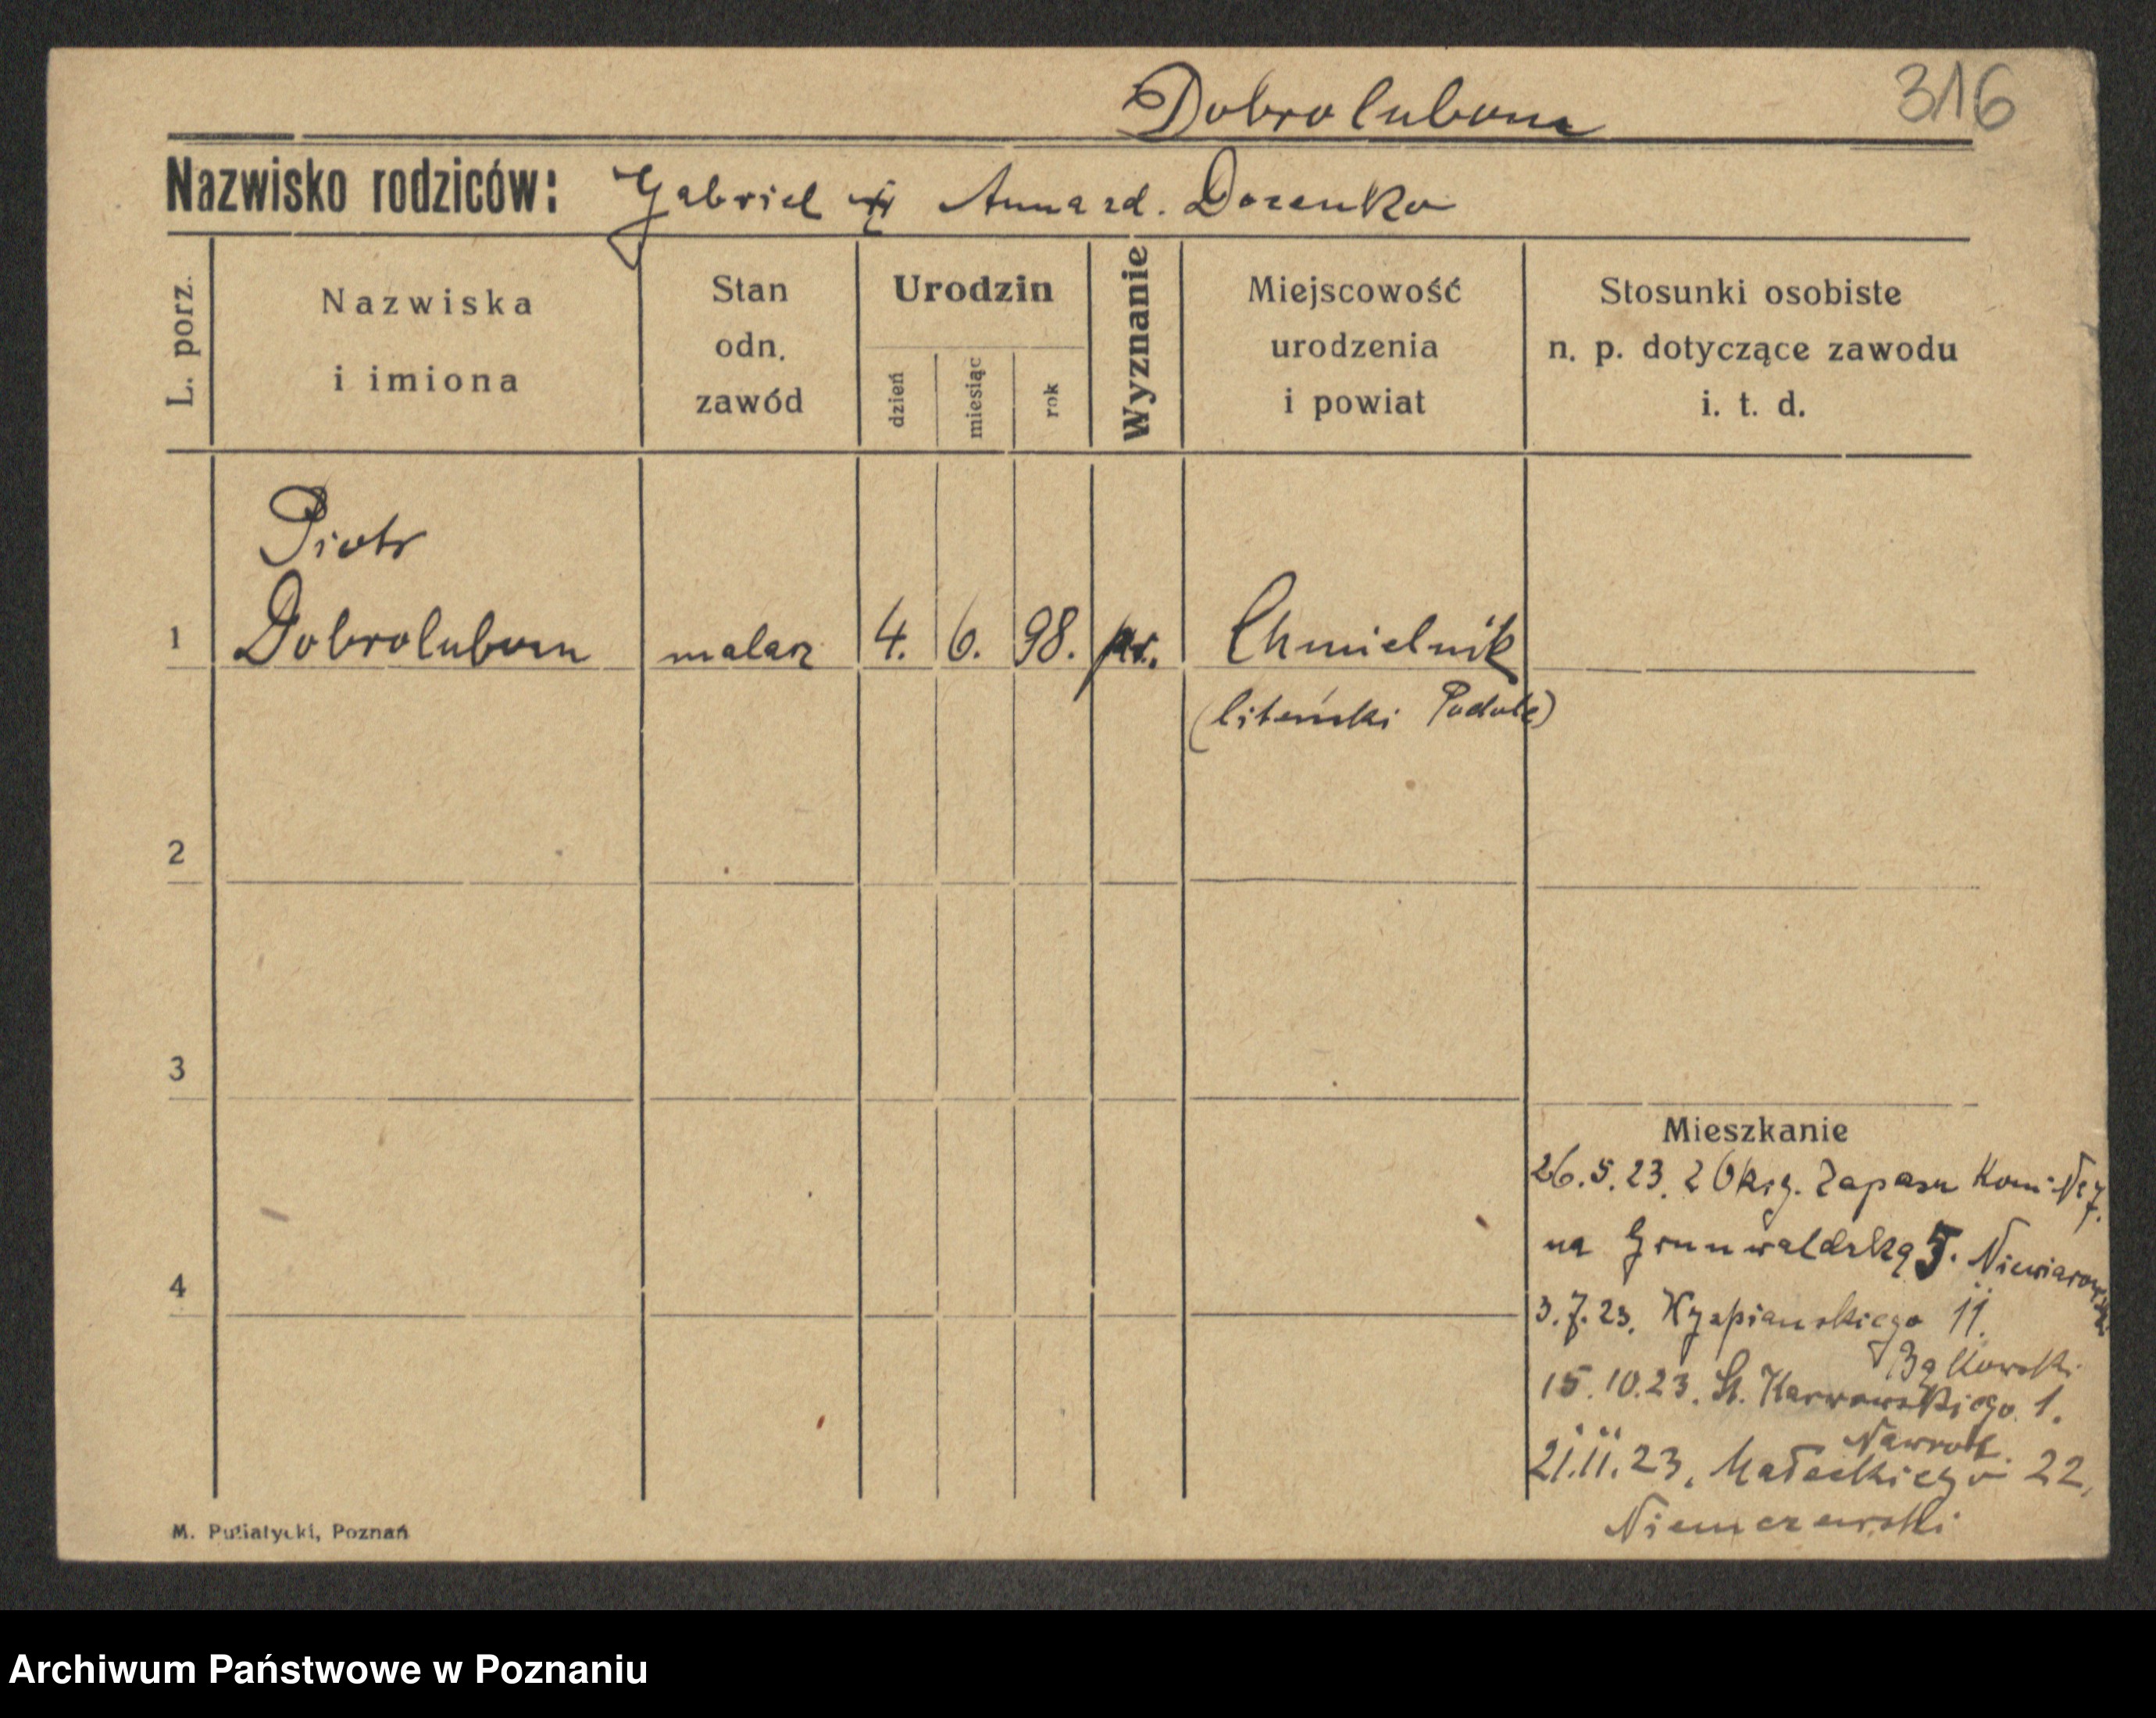 316
Dobrolubow
Nazwisko rodziców: Gabriel Anna zd. Dorenko
L. porz.
Nazwiska
i imiona
Stan
odn.
zawód
Urodzin
dzień
miesiąc
rok
Wyznanie
Miejscowość
urodzenia
i powiat
Stosunki osobiste
n. p. dotyczące zawodu
i. t. d.
Piotr
1 Dobrolubow malarz 4. 6. 98. pr. Chmielnik
(liteński Podole)
2
3
4
Mieszkanie
26.5.23. z Okrg. Zapasu Koni No 7.
na Grunwaldzką 5. Niewiarowski
3.7.23. Wyspianskiego 11.
Bąkowski
15.10.23. St. Karwowskiego 1.
Nawrot.
21.11.23. Małeckiego 22,
Niemczewski
M. Putiatycki, Poznań
Archiwum Państwowe w Poznaniu